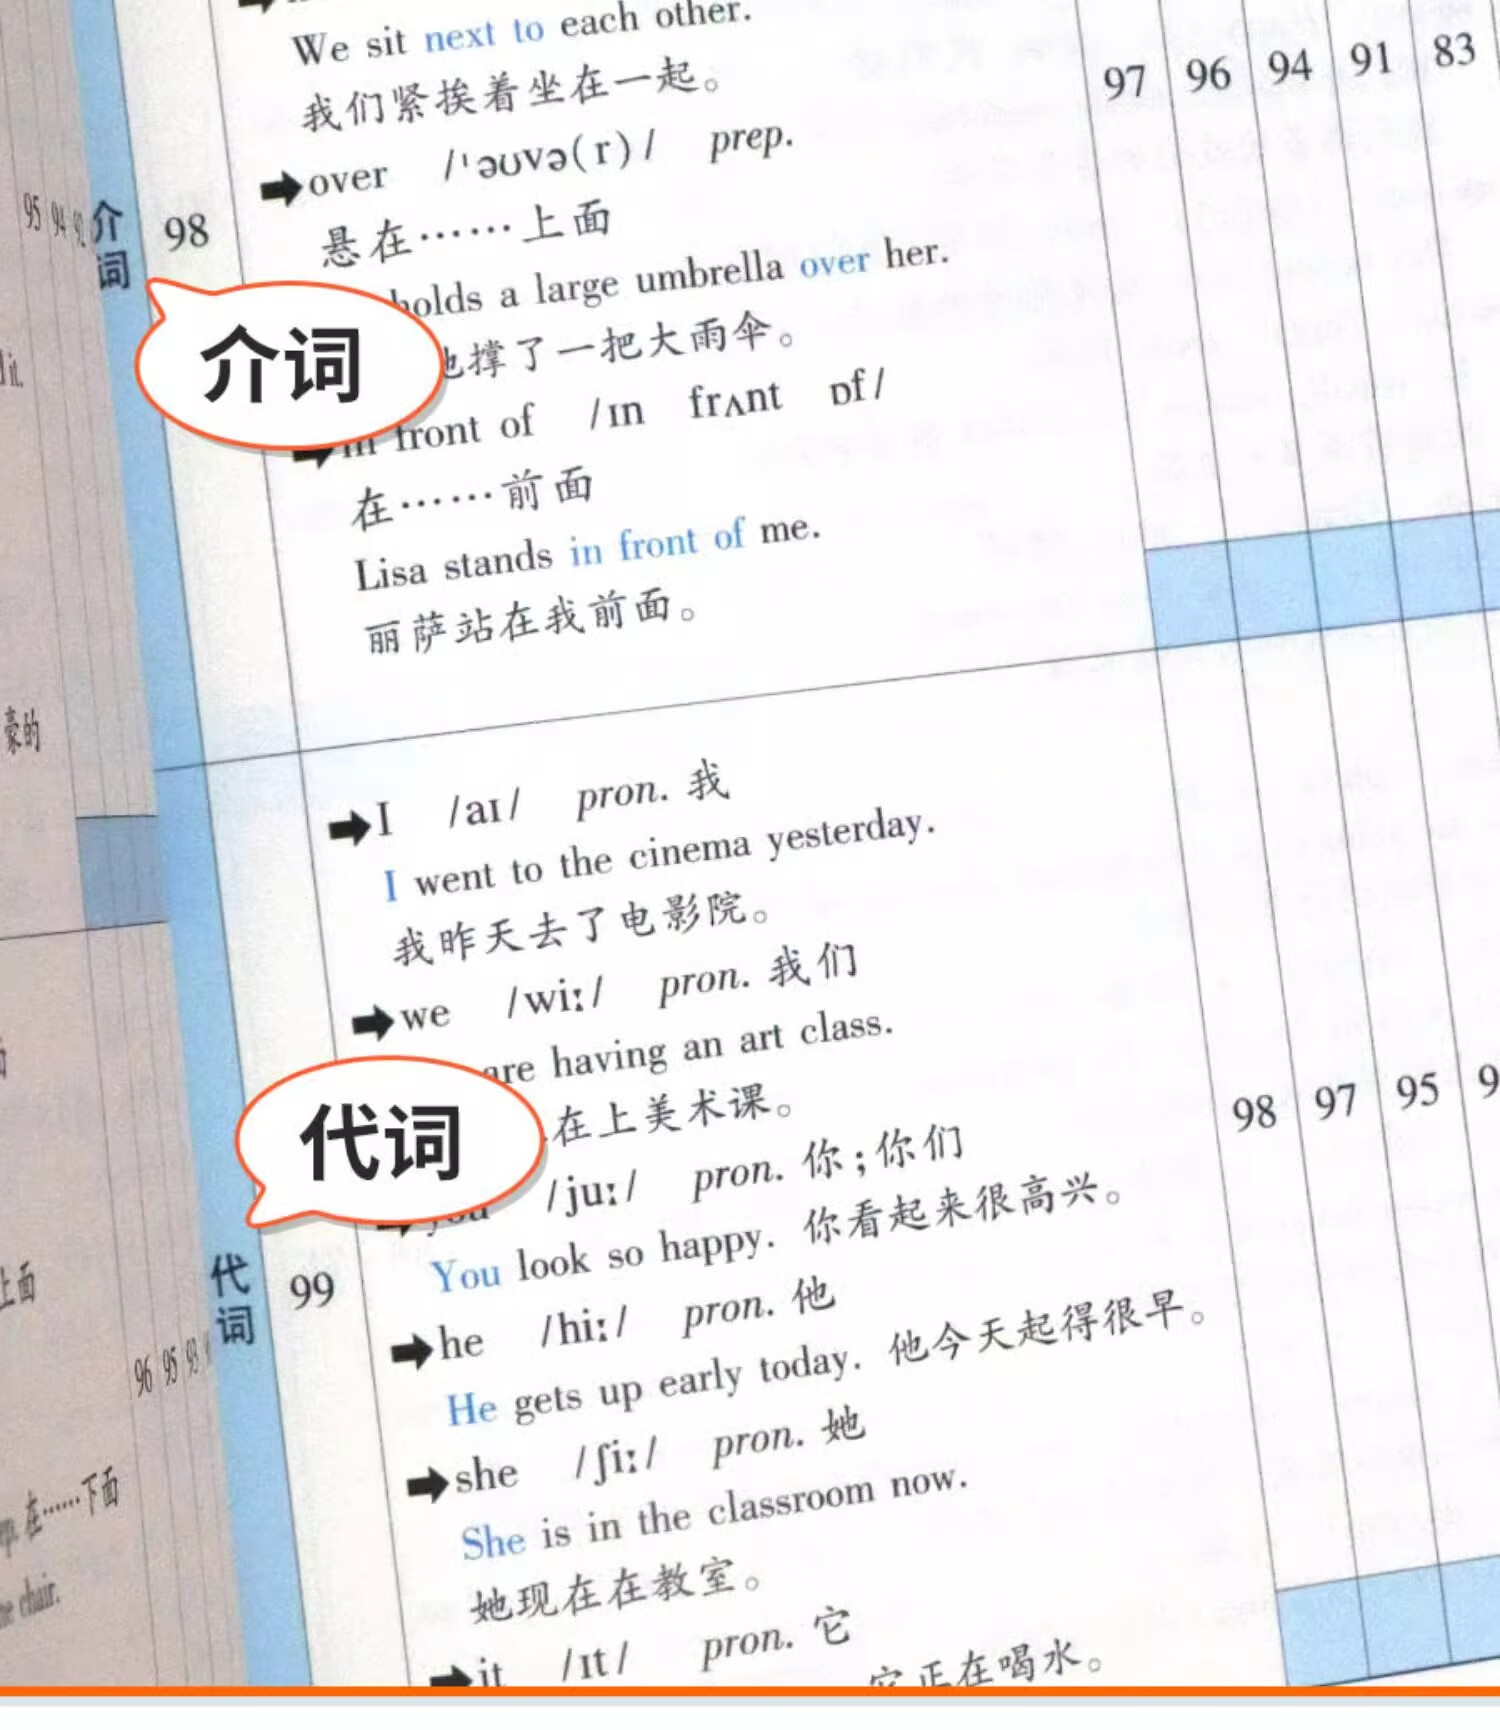 We sit next to each other.
我们紧挨着坐在一起。
97 96 94 91 83
over /ˈəʊvə(r)/ prep.
悬在……上面
95 94 92
介词
98
holds a large umbrella over her.
他撑了一把大雨伞。
介词
it.
in front of /ɪn frʌnt ɒf/
在……前面
Lisa stands in front of me.
丽萨站在我前面。
豪的
I /aɪ/ pron. 我
I went to the cinema yesterday.
我昨天去了电影院。
we /wiː/ pron. 我们
are having an art class.
在上美术课。
代词
98 97 95 9
you /juː/ pron. 你;你们
You look so happy. 你看起来很高兴。
上面
代词
99
he /hiː/ pron. 他
He gets up early today. 他今天起得很早。
96 95 93
she /ʃiː/ pron. 她
She is in the classroom now.
她现在在教室。
在……下面
chair.
it /ɪt/ pron. 它
它正在喝水。